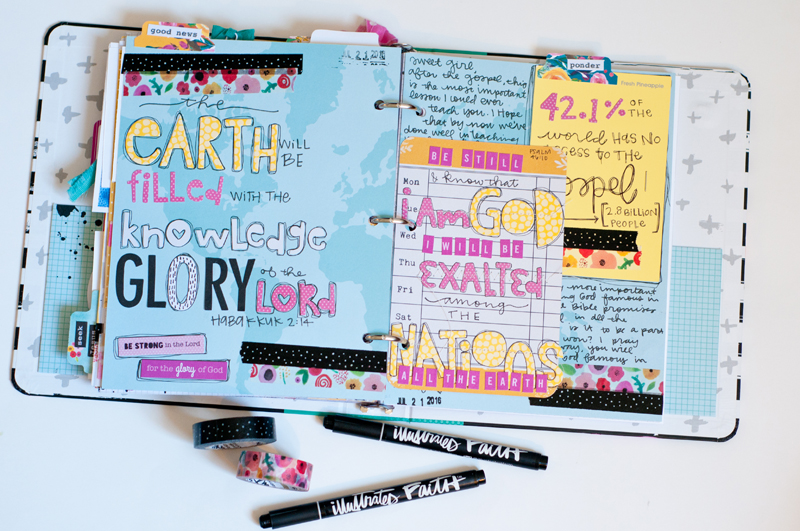 good news
JUL 21 2016
the
EARTH WILL
BE
filled WITH THE
knowledge
GLORY of the
LORD
HABAKKUK 2:14
BE STRONG in the Lord
for the glory of God
seek
sweet girl
after the gospel, this
is the most important
lesson I could ever
teach you. I hope
that by now we've
done well in teaching
ponder
Fresh Pineapple
42.1% OF
THE
world HAS NO
to THE
gospel!
[2.8 BILLION
PEOPLE]
PSALM
46:10
BE STILL
Mon
& know that
i am GOD
Tue
Wed
I WILL BE
Thu
EXALTED
Fri
among
THE
Sat
NATIONS
ALL THE EARTH
more important
God famous in
Bible promises
in all the
is it to be a part
won? I pray
you will
Lord famous in
21 2016
illustrated FAITH
illustrated FAITH